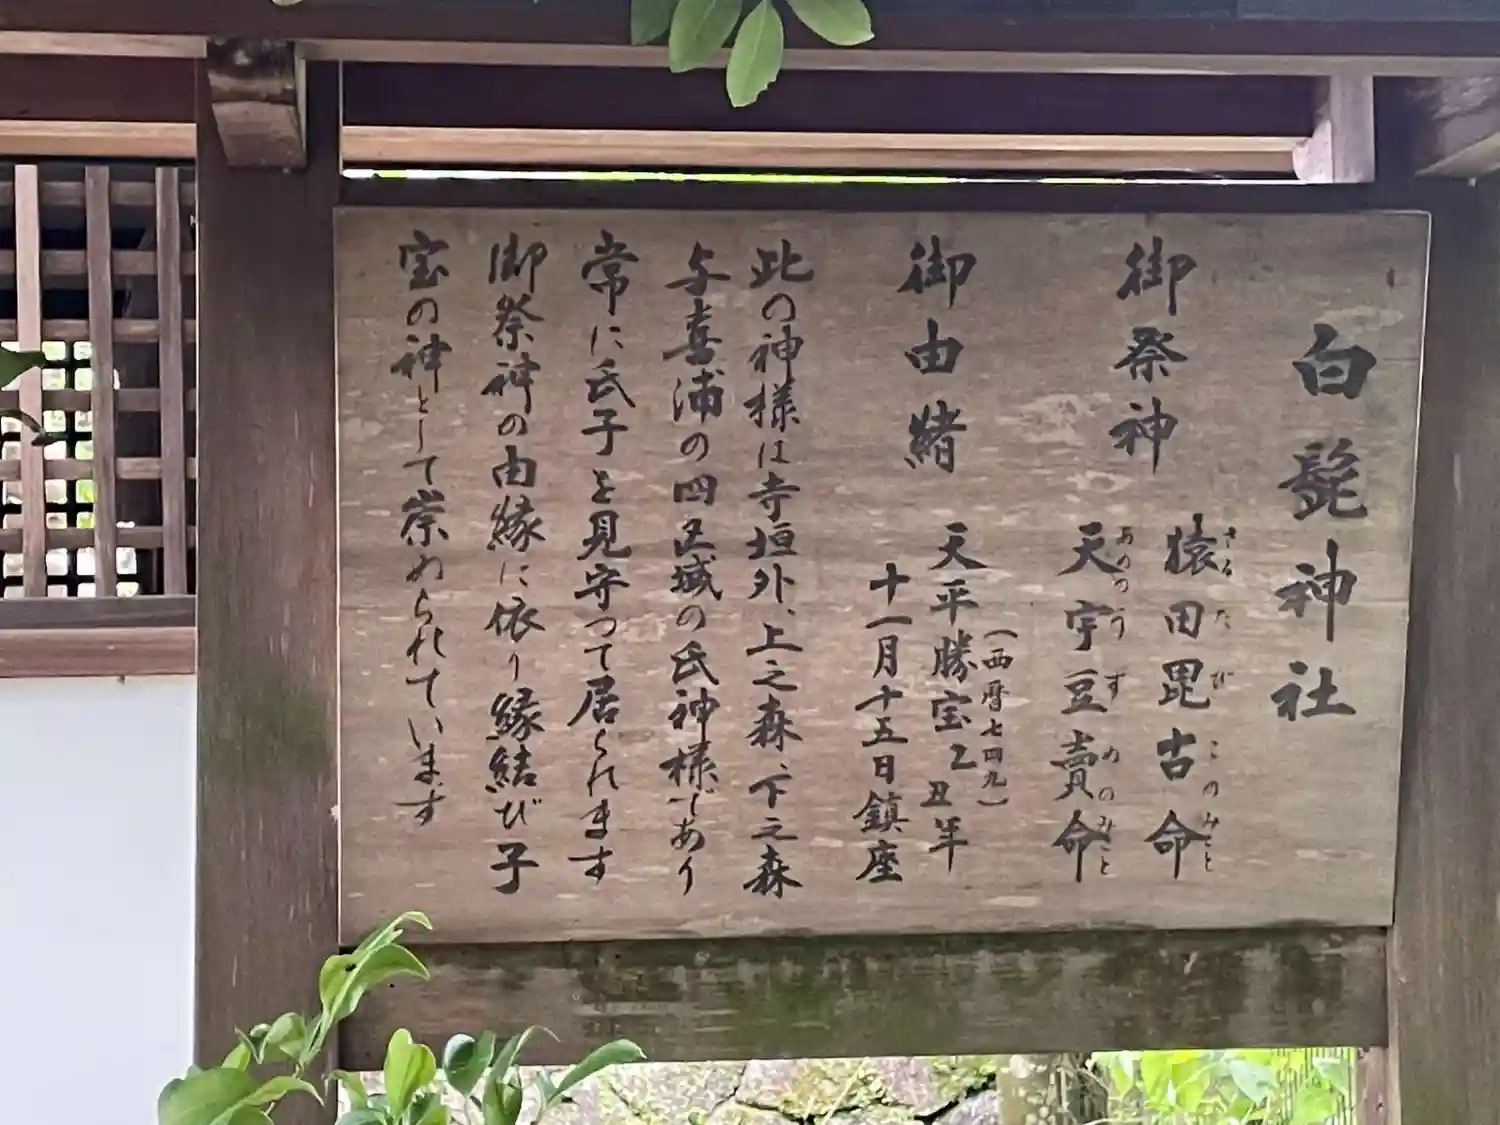 白髭神社
御祭神
猿田毘古命
さるたびこのみこと
天宇豆賣命
あめのうずめのみこと
御由緒
(西暦七四九)
天平勝宝乙丑年
十一月十五日鎮座
此の神様は寺垣外、上之森、下之森
与喜浦の四区域の氏神様であり
常に氏子を見守って居られます
御祭神の由縁に依り縁結び子
宝の神として崇められています